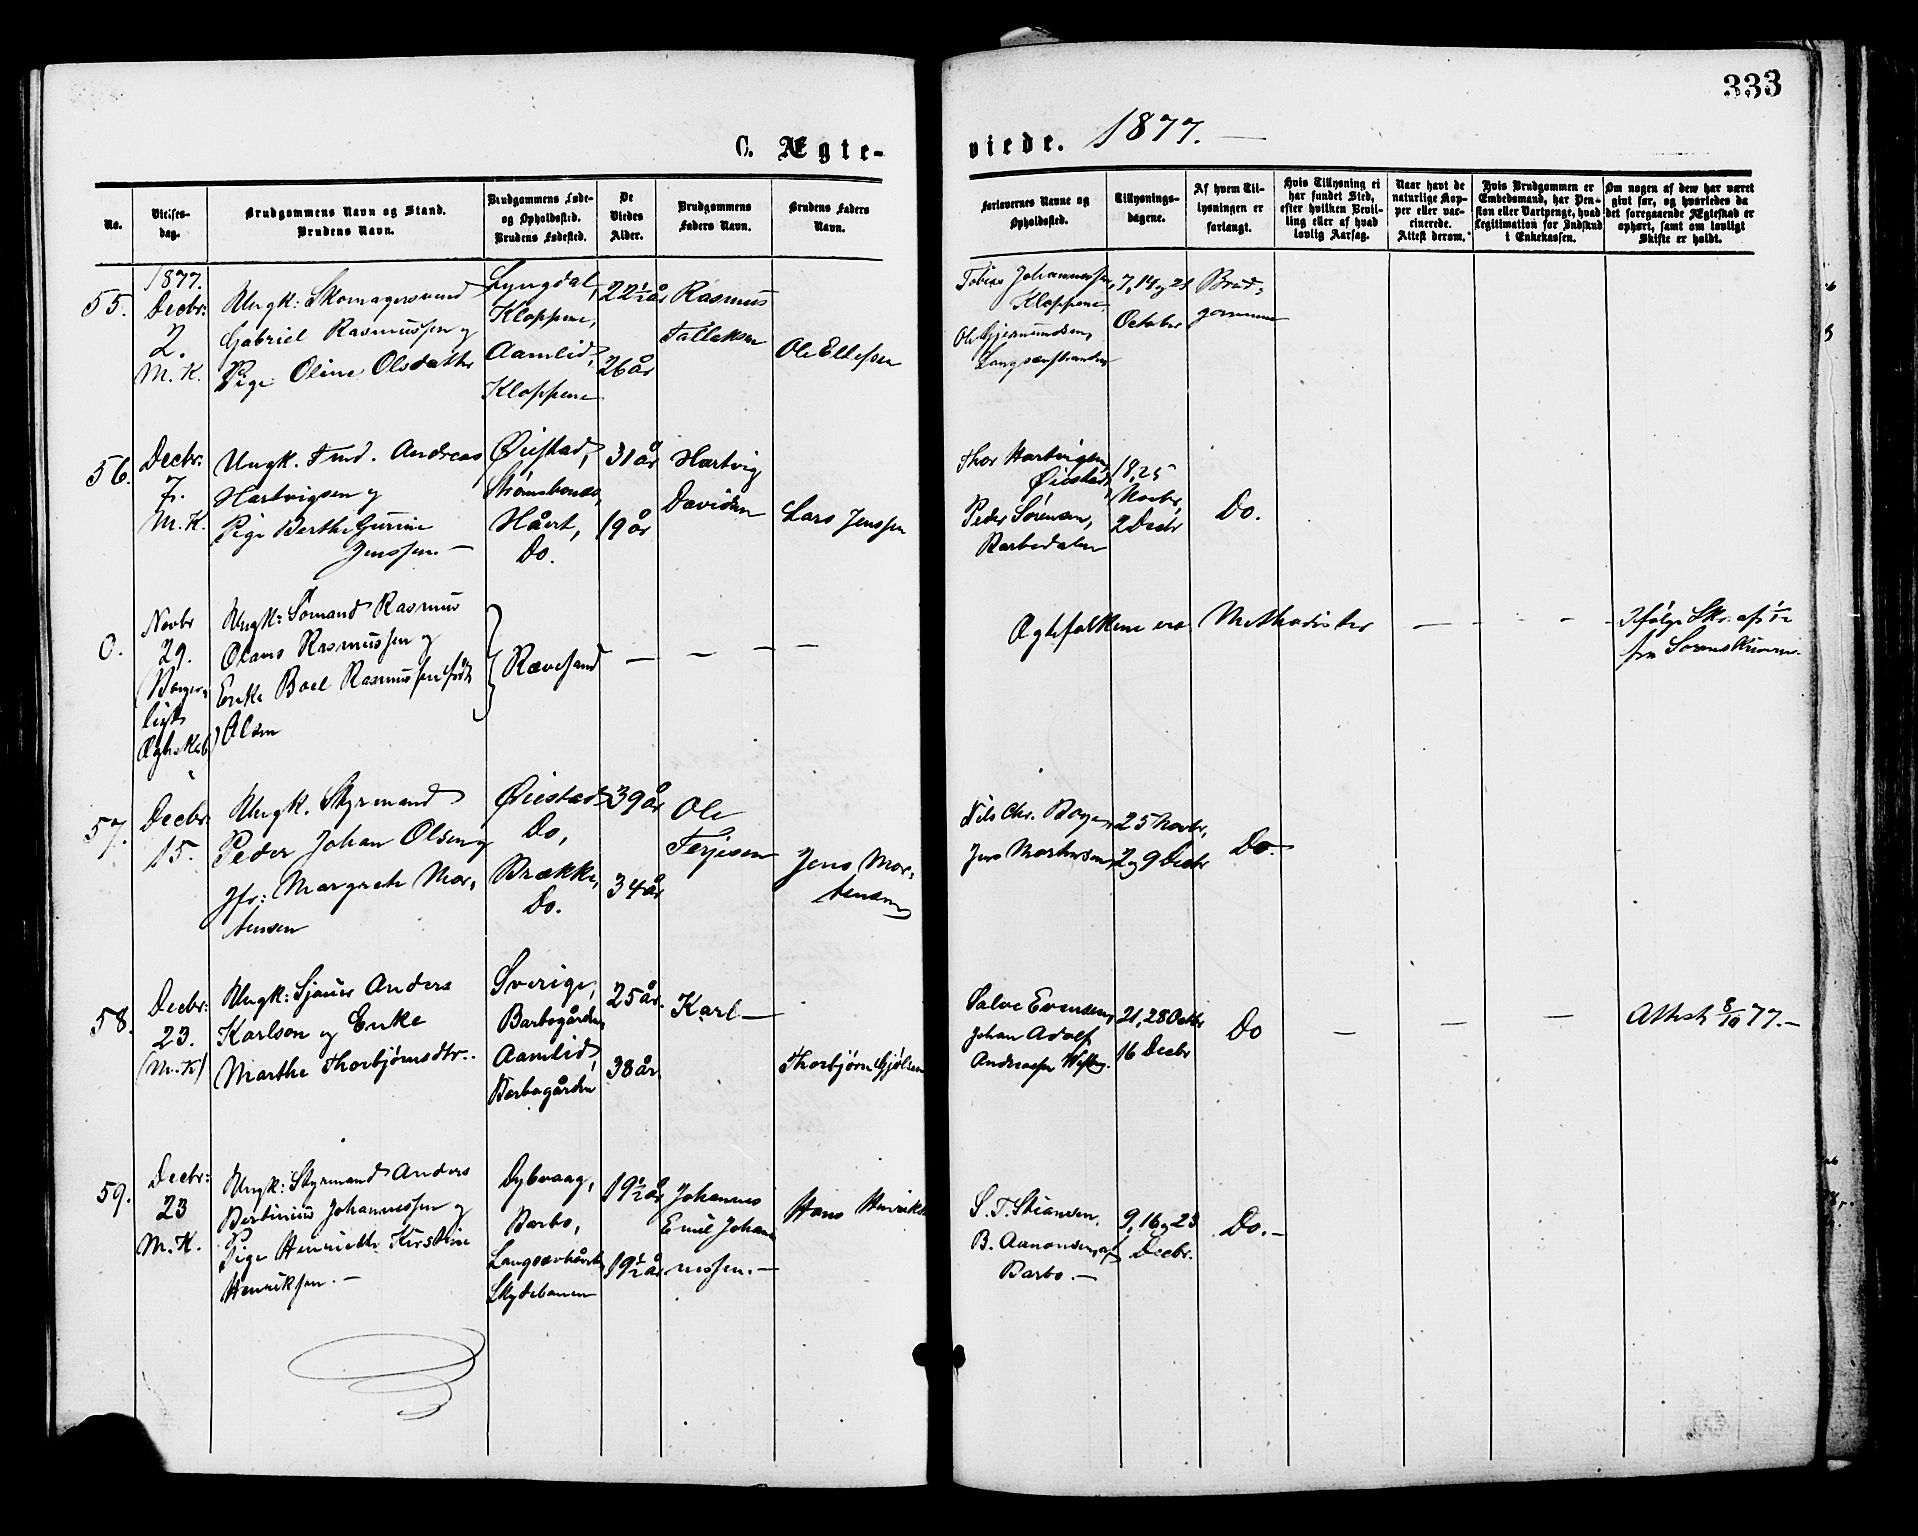 333
C. Ægte-
viede. 1877.
No.
Vielses-
dag.
Brudgommens Navn og Stand.
Brudens Navn.
Brudgommens Føde-
og Opholdssted.
Brudens Fødested.
De
Viedes
Alder.
Brudgommens
Faders Navn.
Brudens Faders
Navn.
Forlovernes Navne og
Opholdssted.
Tillysnings-
dagene.
Af hvem Til-
lysningen er
forlangt.
Hvis Tillysning ei
har fundet Sted,
efter hvilken Bevil-
ling eller af hvad
lovlig Aarsag.
Naar havt de
naturlige Kop-
per eller vac-
cinerede.
Attest derom.
Hvis Brudgommen er
Embedsmand, har Pen-
sion eller Vartpenge, hvad
Legitimation for Indskud
i Enkekassen.
Om nogen af dem har været
gift før, og hvorledes da
det foregaaende Ægteskab er
ophørt, samt om lovligt
Skifte er holdt.
55.
1877.
Decbr:
2.
M. K.
Ungk: Skomagersvend
Gabriel Rasmussen og
Pige Oline Olsdatter
Lyngdal,
Kloppene,
Aamlid,
Kloppene
22½ år
26 år
Rasmus
Tallaksen
Ole Ellefsen
Tobias Johannessen,
Kloppene
Ole Gjermundsen,
Langsævstranden
7, 14 og 21
October
Brud-
gommen
56.
Decbr.
7.
M. K.
Ungk. Tmd. Andreas
Hartvigsen og
Pige Berthe Gurine
Jenssen. —
Øiestad,
Strømsbonæs,
Håert,
Do.
31 år
19 år
Hartvig
Davidsen
Lars Jenssen
Thor Hartvigsen,
Øiestad,
Peder Sørensen,
Barbodalen
18, 25
Novbr,
2 Decbr
Do.
0.
Novbr
29.
(Borger-
ligt
Ægteskab)
Ungk: Sømand Rasmus
Olaus Rasmussen og
Enke Boel Rasmussen født
Olsen
Rævesand
— — — —
Ægtefolkene ere Methodister — — —
Ifølge Skr. af 1/12
fra Sorenskriveren.
57.
Decbr:
15.
Ungk. Styrmand
Peder Johan Olsen og
Jfr: Margrete Mor-
tensen
Øiestad
Do,
Brække,
Do.
39 år
34 år
Ole
Terjesen
Jens Mor-
tensen
Nils Chr. Boye,
Jens Mortensen
25 Novbr,
2 og 9 Decbr
Do.
58.
Decbr:
23.
(M. K)
Ungk: Sjauer Anders
Karlson og Enke
Marthe Thorbjørnsdtr.
Sverige,
Barbogården
Aamlid,
Barbogården
25 år.
38 år.
Karl —
Thorbjørn Gjølsen
Salve Evensen,
Johan Adolf
Andreasen
21, 28 Octbr
16 Decbr
Do — — —
Attest 8/10 77. —
59.
Decbr:
23
M. K.
Ungk: Styrmand Anders
Bertinius Johannessen og
Pige Henriette Kirstine
Henriksen. —
Dybvaag,
Barbo,
Langsævhåert
Skydebanen
19½ år
19½ år
Johannes
Emil Johan-
nessen. —
Hans Henriksen
S. T. Stiansen,
B. Aanonsen, af
Barbo. —
9, 16 og 23
Decbr.
Do. —